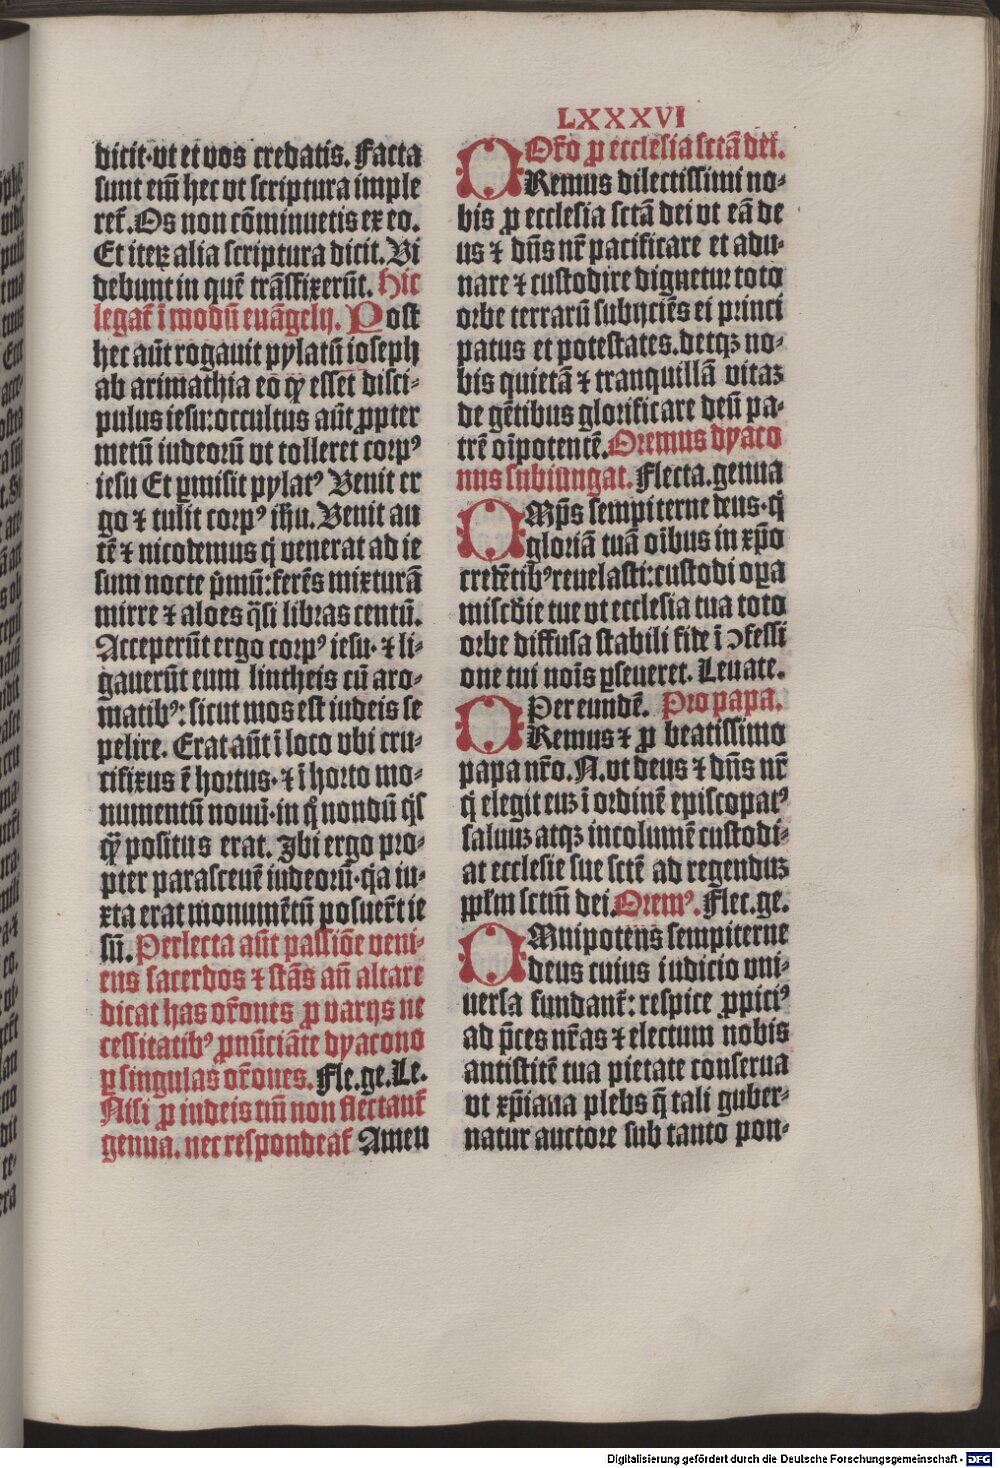 LXXXVI
dicit·vt et vos credatis. Facta
sunt em̄ hec vt scriptura imple
ret̄. Os non cōminuetis ex eo.
Et iteꝝ alia scriptura dicit. Vi
debunt in quē trāsfixerūt. Hic
legat̄ ī modū euāgelij. Post
hec aūt rogauit pylatū ioseph
ab arimathia eo ꝙ esset disci-
pulus iesu:occultus aūt ꝓpter
metū iudeorū vt tolleret corpꝰ
iesu Et ꝑmisit pylatꝰ Venit er
go ⁊ tulit corpꝰ ihu. Venit au
tē ⁊ nicodemus q̇ venerat ad ie
sum nocte p̄mū:ferēs mixturā
mirre ⁊ aloes q̄si libras centū.
Acceperūt ergo corpꝰ iesu· ⁊ li-
gauerūt eum lintheis cū aro-
matibꝰ: sicut mos est iudeis se
pelire. Erat aūt ī loco vbi cru-
cifixus ē hortus· ⁊ ī horto mo-
numentū nouū·in q̊ nondū q̇s
ꝙ̄ positus erat. Ibi ergo pro-
pter parasceuē iudeorū·q̇a iu-
xta erat monumētū posuer̄t ie
sū. Perlecta aūt passiōe veni-
ens sacerdos ⁊ stās añ altare
dicat has or̄ones ꝓ varijs ne
cessitatibꝰ ꝓnūciāte dyacono
ꝑ singulas or̄ones. Fle.ge.Le.
Nisi ꝓ iudeis tm̄ non flectant̄
genua. nec respondeat̄ Amen
Or̄o ꝓ ecclesia sctā dei.
ORemus dilectissimi no-
bis ꝓ ecclesia sctā dei vt eā de
us ⁊ dn̄s nr̄ pacificare et adu-
nare ⁊ custodire dignetur toto
orbe terrarū subijciēs ei princi
patus et potestates.detqꝫ no-
bis quietā ⁊ tranquillā vitaꝫ
de gētibus glorificare deū pa-
trē oīpotentē. Oremus dyaco
nus subiungat. Flecta.genua
OMp̄s sempiterne deus·q̇
gloriā tuā oībus in xp̄o
credētibꝰ reuelasti:custodi oꝑa
mīscd̄ie tue vt ecclesia tua toto
orbe diffusa stabili fide ī ↄfessi
one tui noīs ꝑseueret. Leuate.
Per eundē. Pro papa.
ORemus ⁊ ꝓ beatissimo
papa nr̄o. N. vt deus ⁊ dn̄s nr̄
q̇ elegit euꝫ ī ordinē episcopatꝰ
saluuꝫ atqꝫ incolumē custodi-
at ecclesie sue sctē ad regenduꝫ
pplm sctm̄ dei. Oremꝰ. Flec.ge.
OMnipotens sempiterne
deus cuius iudicio vni-
uersa fundant̄: respice ꝓpiciꝰ
ad p̄ces nr̄as ⁊ electum nobis
antistitē tua pietate conserua
vt xp̄iana plebs q̄ tali guber-
natur auctore sub tanto pon-
Digitalisierung gefördert durch die Deutsche Forschungsgemeinschaft - DFG